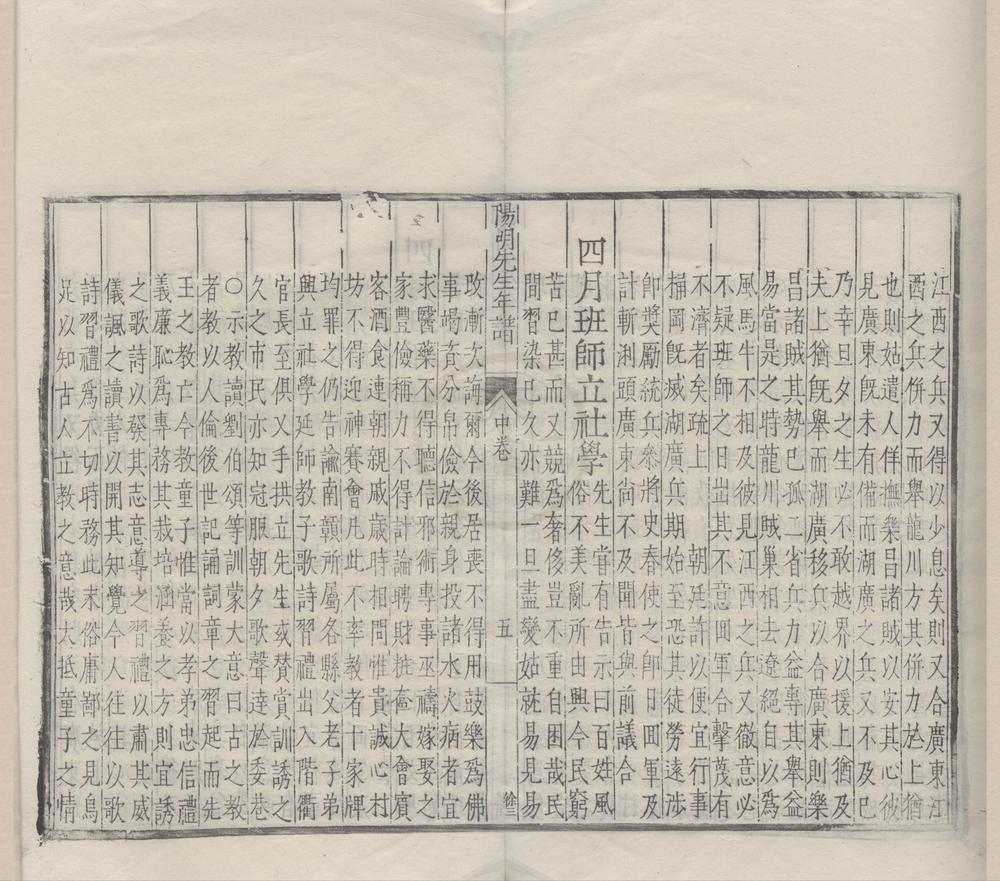 江西之兵又得以少息矣則又合廣東江
西之兵併力而舉龍川方其併力於上猶
也則姑遣人佯撫樂昌諸賊以安其心彼
見廣東旣未有備而湖廣之兵又不及已
乃幸旦夕之生必不敢越界以援上猶及
夫上猶旣舉而湖廣移兵以合廣東則樂
昌諸賊其勢已孤二省兵力益專其舉益
易當是之時龍川賊巢相去遼絕自以爲
風馬牛不相及彼見江西之兵又徹意必
不疑班師之日出其不意回軍合擊蔑有
不濟者矣疏上 朝廷許以便宜行事
桶岡旣滅湖廣兵期始至恐其徒勞遠涉
卽奬勵統兵叅將史春使之卽日回軍及
計斬浰頭廣東尚不及聞皆與前議合
四月班師立社學先生嘗有告示曰百姓風
俗不美亂所由興今民窮
苦已甚而又競爲奢侈豈不重自困哉民
間習染已久亦難一旦盡變姑就易見易
陽明先生年譜 中卷 五
改漸次誨爾今後居喪不得用鼓樂爲佛
事竭貲分帛儉於親身投諸水火病者宜
求醫藥不得聽信邪術專事巫禱嫁娶之
家豐儉稱力不得計論聘財粧奩大會賓
客酒食連朝親戚歲時相問惟貴誠心村
坊不得迎神賽會凡此不率教者十家牌
均罪之仍告諭南贛所屬各縣父老子弟
興立社學延師教子歌詩習禮出入階衢
官長至俱叉手拱立先生或賛賞訓誘之
久之市民亦知冠服朝夕歌聲達於委巷
○示教讀劉伯頌等訓蒙大意曰古之教
者教以人倫後世記誦詞章之習起而先
王之教亡今教童子惟當以孝弟忠信禮
義廉恥爲專務其栽培涵養之方則宜誘
之歌詩以發其志意導之習禮以肅其威
儀諷之讀書以開其知覺今人往往以歌
詩習禮爲不切時務此末俗庸鄙之見烏
足以知古人立教之意哉大抵童子之情